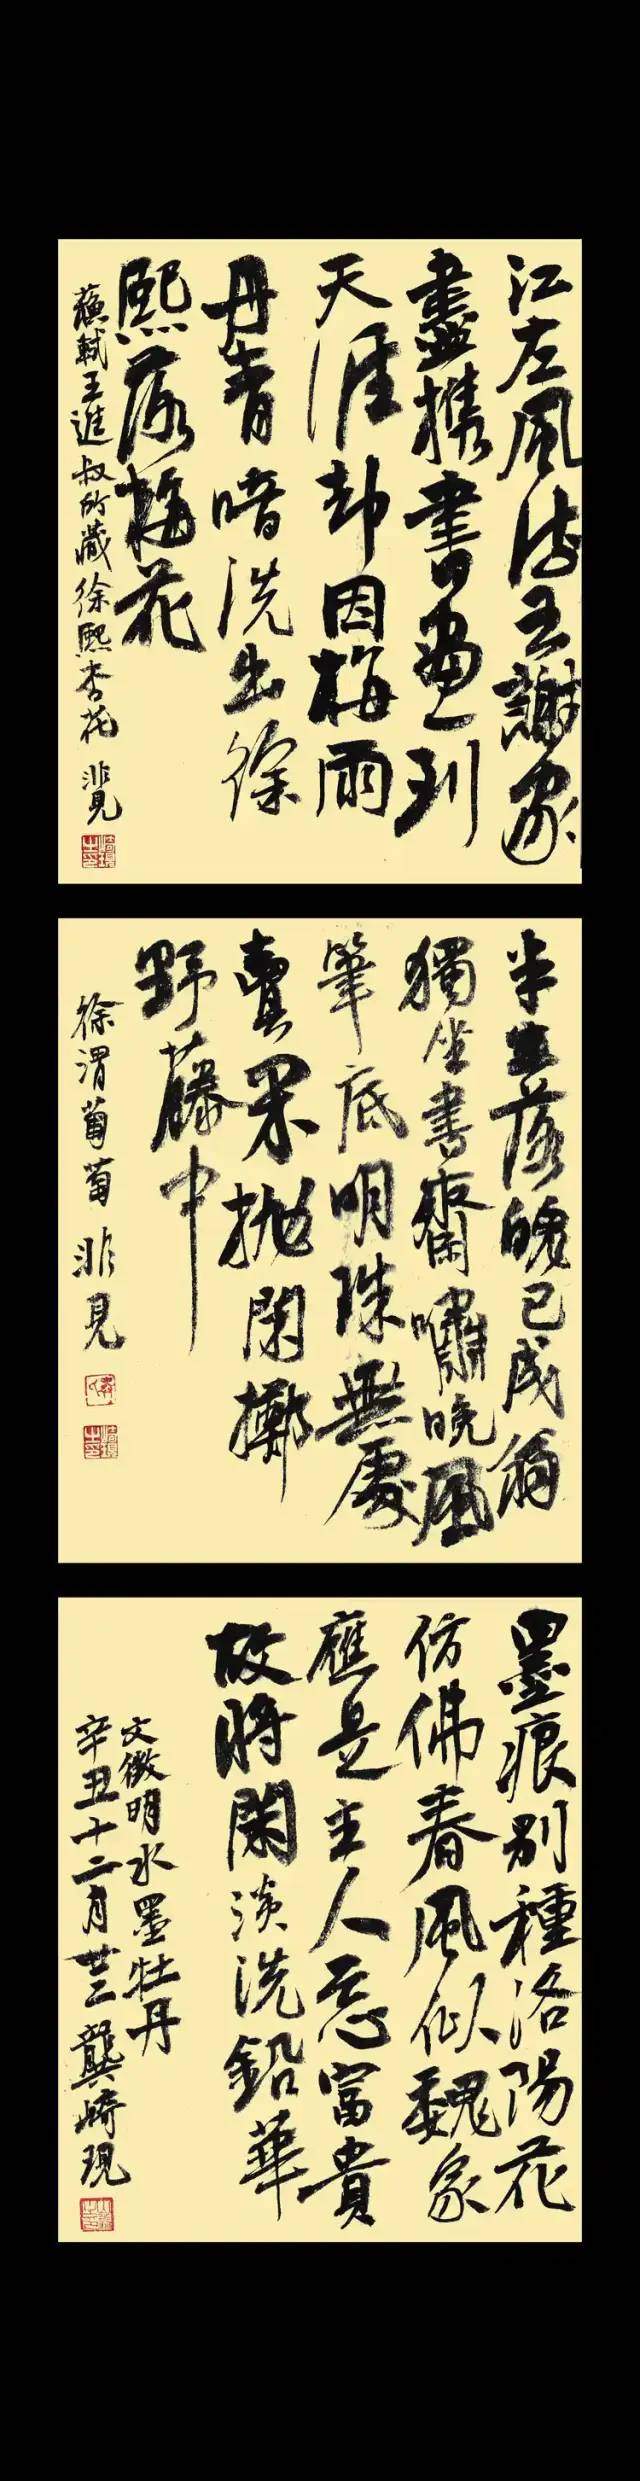 江左風流王謝家
盡携書畫到
天涯却因梅雨
丹青暗洗出徐
熙落梅花
蘇軾王進叔所藏徐熙杏花 非見
半生落魄已成翁
獨坐書齋嘯晚風
筆底明珠無處
賣抛閑擲
野藤中
徐渭葡萄 非見
墨痕别種洛陽花
仿佛春風似魏家
應是主人忘富貴
故將閑淡洗鉛華
文徵明水墨牡丹
辛丑十二月廿三 龔崎現